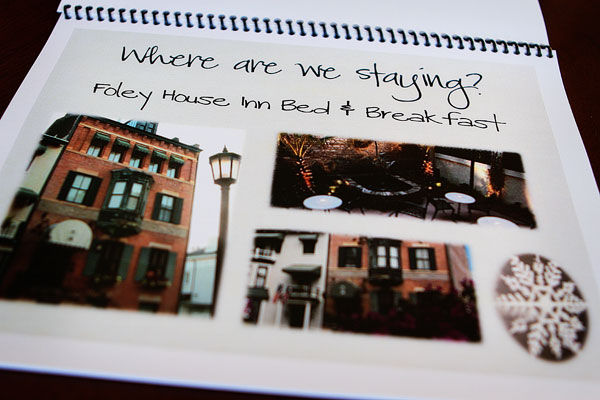 Where are we staying?
Foley House Inn Bed & Breakfast